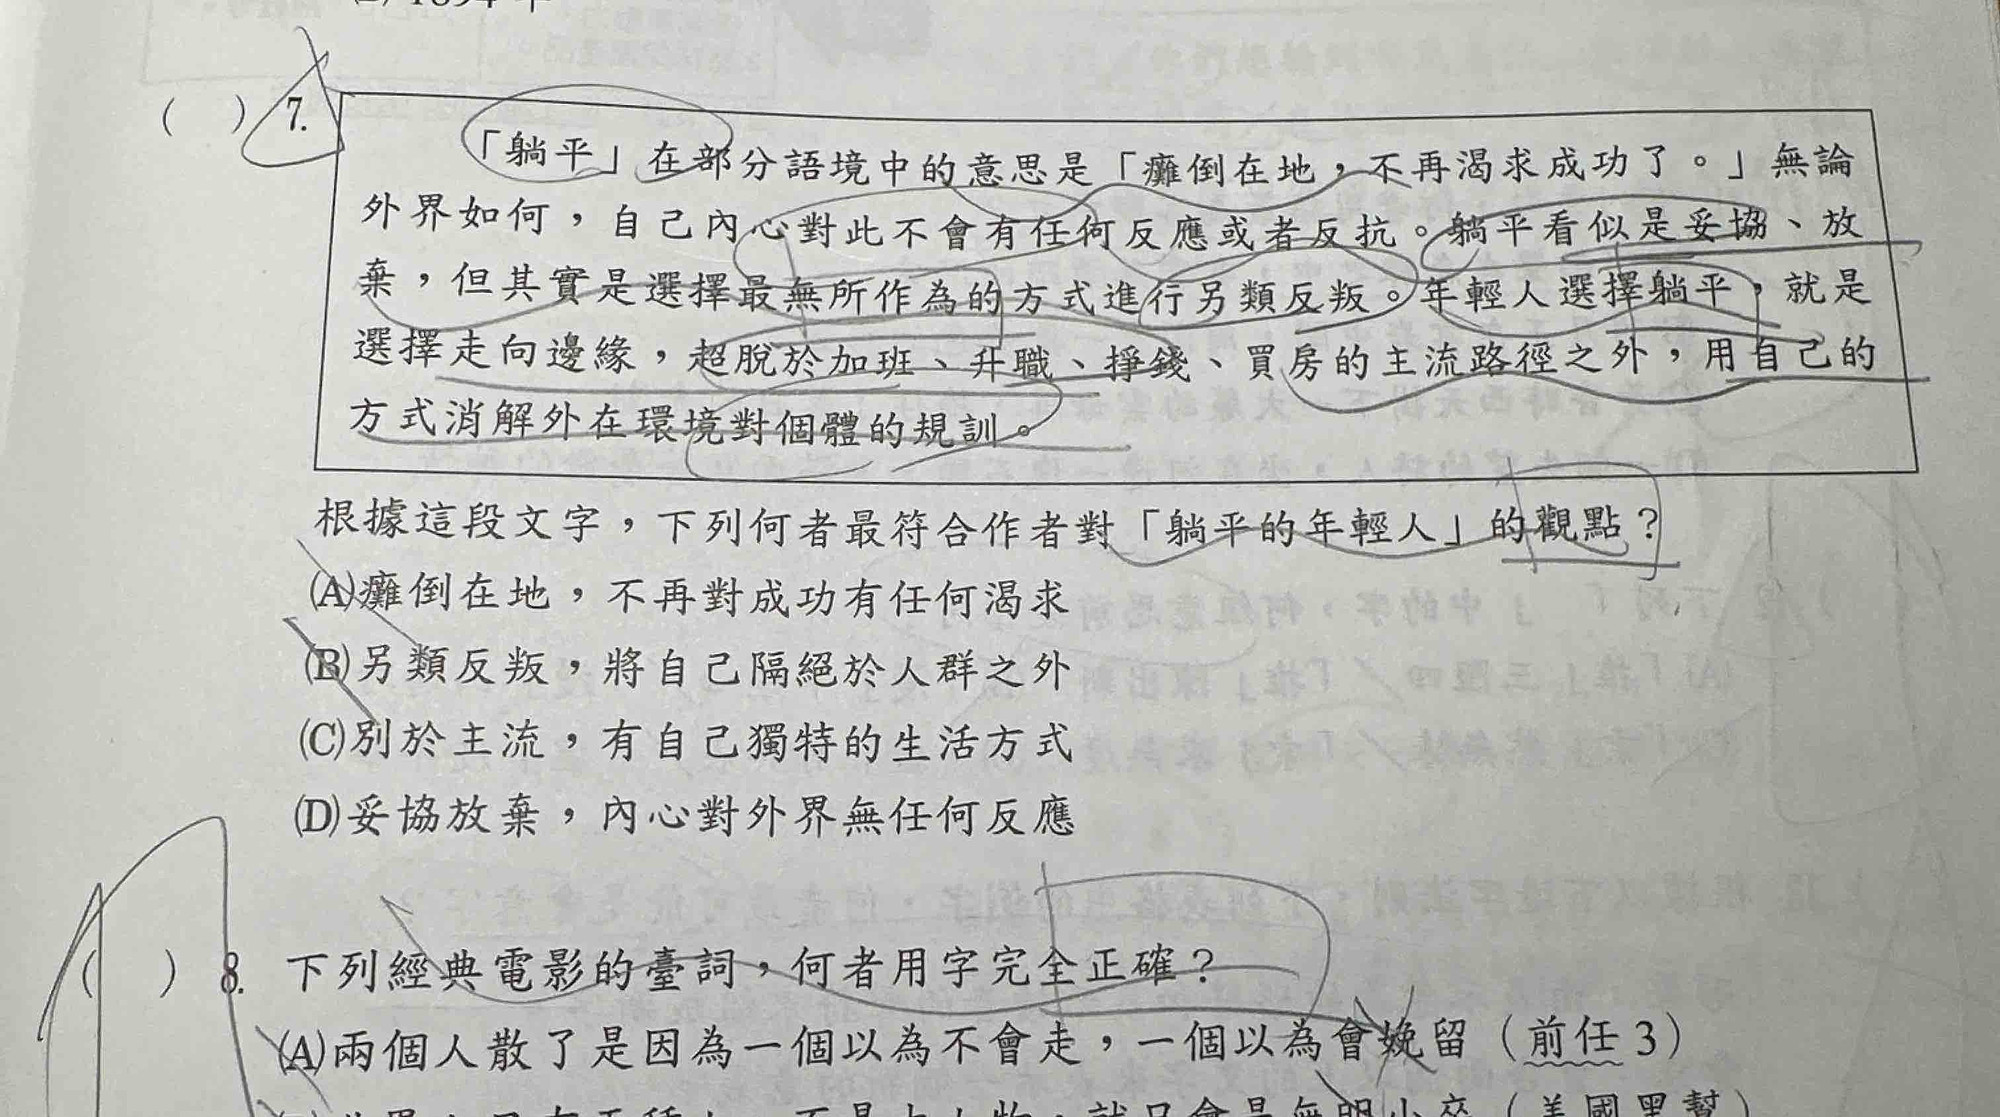 ( ) 7.
「躺平」在部分語境中的意思是「癱倒在地，不再渴求成功了。」無論
外界如何，自己內心對此不會有任何反應或者反抗。躺平看似是妥協、放
棄，但其實是選擇最無所作為的方式進行另類反叛。年輕人選擇躺平，就是
選擇走向邊緣，超脫於加班、升職、掙錢、買房的主流路徑之外，用自己的
方式消解外在環境對個體的規訓。
根據這段文字，下列何者最符合作者對「躺平的年輕人」的觀點？
(A)癱倒在地，不再對成功有任何渴求
(B)另類反叛，將自己隔絕於人群之外
(C)別於主流，有自己獨特的生活方式
(D)妥協放棄，內心對外界無任何反應
( ) 8. 下列經典電影的臺詞，何者用字完全正確？
(A)兩個人散了是因為一個以為不會走，一個以為會娩留（前任3）